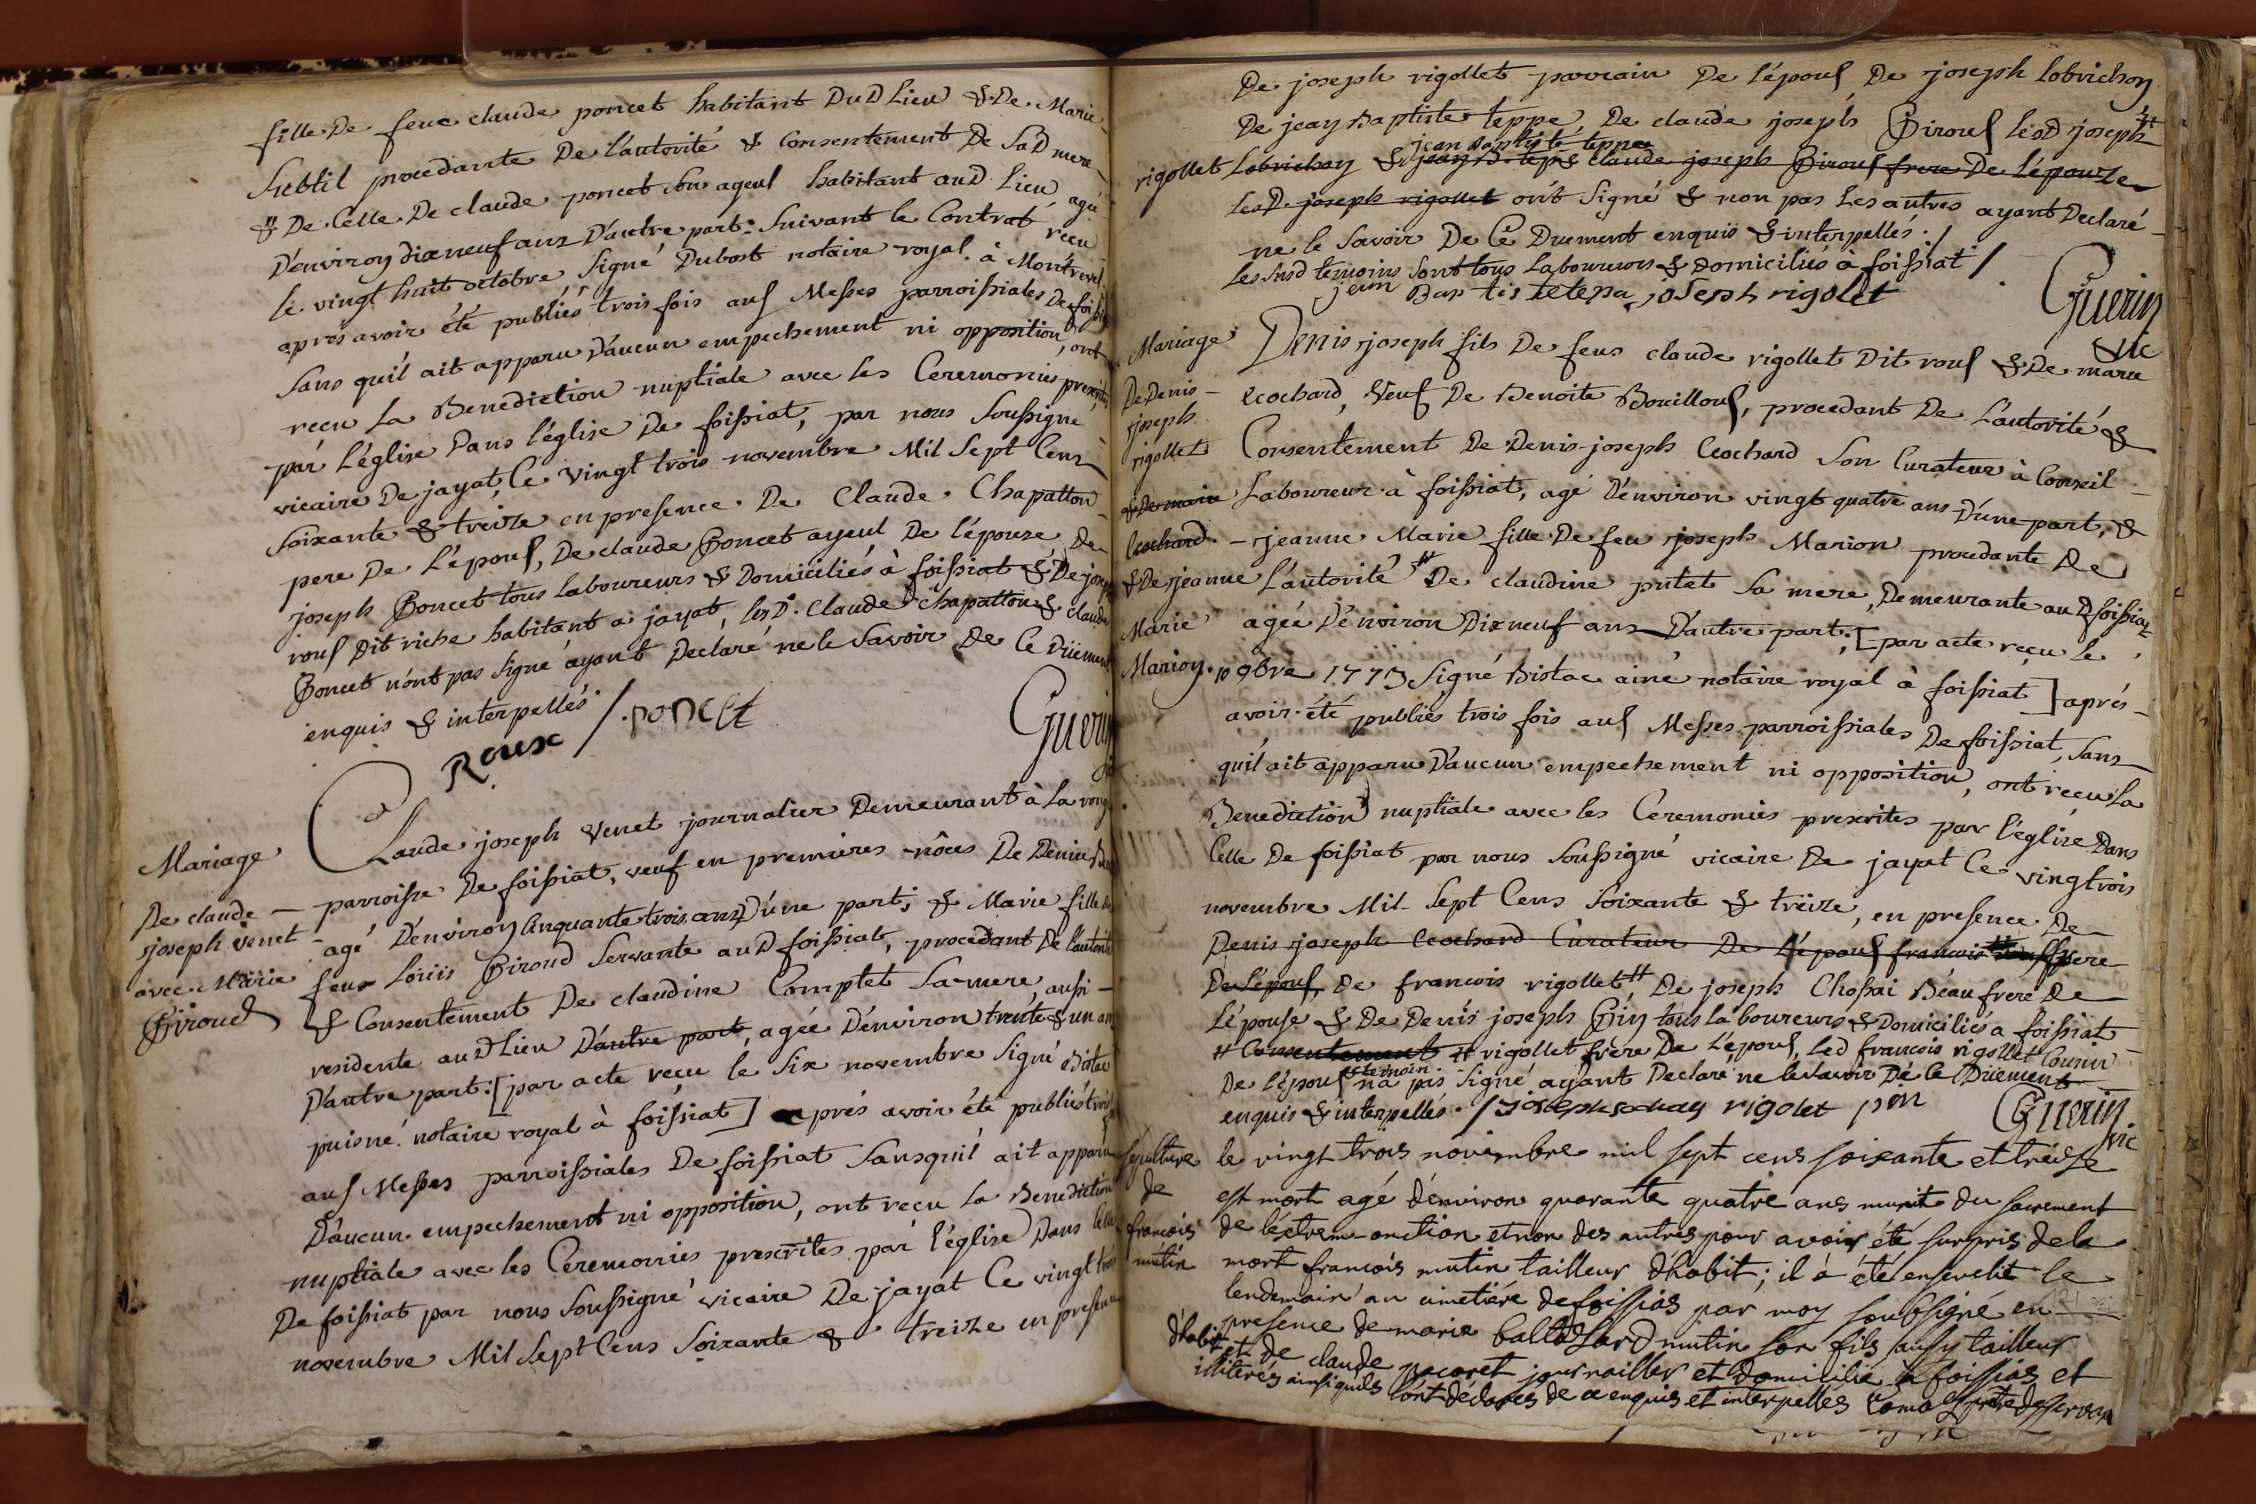 fille De feue claude poncet habitant DuD Lieu & De Marie
Subtil procedante De L'autorité & Consentement De SaD mere
& De Celle De claude poncet son ayeul habitant auD Lieu, agée
D'environ dixneuf ans D'autre part: Suivant le Contrat reçu
le vingt huit octobre Signé Dubost notaire royal à Montrevel
après avoir été publiés trois fois aux Messes parroissiales De foissiat
Sans qu'il ait apparu D'aucun empechement ni opposition, ont
recu La Benediction nuptiale avec les Ceremonies prescrites
par L'église Dans l'église De foissiat, par nous Soussigné
vicaire De jayat, Ce vingt trois novembre Mil Sept Cens
Soixante & treize en presence De Claude Chapatton
pere De L'époux, De claude Poncet ayeul De l'épouze, De
joseph Poncet tous Laboureurs & Domiciliés à foissiat & De joseph
roux Dit riche habitant a jayat, lesD. Claude Chapatton & claude
Poncet n'ont pas Signé ayant Declaré ne le Savoir De Ce Düement
enquis & interpellés. /. poncet
Roux
Guerin
Mariage
De claude
joseph venet
avec Marie
Giroud
Claude joseph Venet journalier Demeurant à La
parroisse De foissiat, veuf en premieres nôces De Denise
agé D'environ Cinquante trois ans D'une part; & Marie fille de
feux Loüis Giroud Servante auD foissiat, procedant De l'autorité
& Consentement De claudine Complet Sa mere aussi
residente auD Lieu D'autre part, agée D'environ trente & un ans
D'autre part: [par acte reçu le Six novembre Signé Bistac
puisné notaire royal à foissiat] après avoir été publiés trois
aux Messes parroissiales De foissiat Sans qu'il ait apparu
D'aucun empechement ni opposition, ont recu La Benediction
nuptiale avec les Ceremonies prescrites par l'église Dans Celle
De foissiat par nous Soussigné vicaire De jayat Ce vingt trois
novembre Mil Sept Cens Soixante & treize en presence
De joseph rigollet parrain De l'époux De joseph Lobrichon
De jean Baptiste teppe De claude joseph Giroux LesD joseph
jean baptiste teppe
rigollet Lobrichon & jean B. teppe claude joseph Giroux frere De L'épouze
LesD. joseph rigollet ont Signé & non pas Les autres ayant Declaré
ne le Savoir De Ce Dument enquis & interpellés. /
Les SusD temoins Sont tous Laboureurs & Domiciliés à foissiat /.
jean Baptis te tepe joseph rigolet
Guerin
vic
Mariage
De Denis
joseph
rigollet
& De marie
Ecochard
& De jeanne
Marie
Marion.
Denis joseph fils De feus claude rigollet Dit roux & De marie
Ecochard, Veuf De Benoite Bouilloux, procedant De L'autorité &
Consentement De Denis joseph Ecochard Son Curateur à Conseil
Laboureur à foissiat, agé D'environ vingt quatre ans D'une part, &
jeanne Marie fille De feu joseph Marion procedante De
L'autorité De claudine putet Sa mere, Demeurante auD foissiat
agée D'environ Dixneuf ans D'autre part: [par acte reçu le
10 9bre 1773 Signé Bistac ainé notaire royal à foissiat] après
avoir été publiés trois fois aux Messes parroissiales De foissiat, Sans
qu'il ait apparu D'aucun empechement ni opposition, ont recu La
Benediction nuptiale avec les Ceremonies prescrites par l'église Dans
Celle De foissiat par nous Soussigné vicaire De jayat Ce vingt trois
novembre Mil Sept Cens Soixante & treize, en presence De
Denis joseph Ecochard Curateur De L'époux francois frere
De L'époux, De francois rigollet De joseph Chossai Beau frere De
L'épouse & De Denis joseph Pin tous Laboureurs & Domiciliés a foissiat
Consentement rigollet frère De L'époux, LeD francois rigollet Cousin
De l'époux & temoin n'a pas Signé ayant Declaré ne le Savoir De Ce Düement
enquis & interpellés. / joseph rigolet pin
Guerin
vic
sepulture
de
francois
mutin
le vingt trois novembre mil sept cens soixante et treize
est mort agé d'environ quarante quatre ans munit du sacrement
de lextrem-onction et non des autres pour avoir été surpris de la
mort francois mutin tailleur d'habit; il à été ensevelit le
lendemain au cimetiére de foissias par moy soubsigné en
presence de marie baltazard mutin son fils aussy tailleur
d'habit et de claude pacoret journailler et domicilié à foissias et
illiterés ainsi quils l'ont déclarés de ce enquis et interpellés